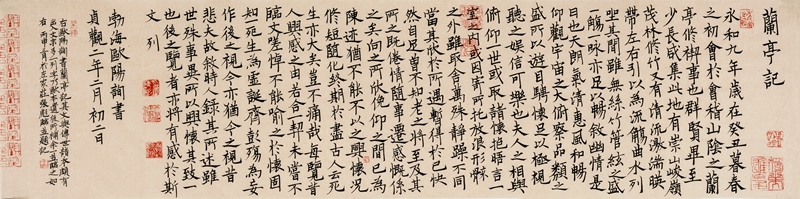 蘭亭記
永和九年歲在癸丑暮春
之初會於會稽山陰之蘭
亭脩稧事也群賢畢至
少長咸集此地有崇山峻嶺
茂林修竹又有清流激湍暎
帶左右引以為流觴曲水列
坐其間雖無絲竹管絃之盛
一觴一詠亦足以暢敘幽情是
日也天朗氣清惠風和暢
仰觀宇宙之大俯察品類之
盛所以遊目騁懷足以極視
聽之娛信可樂也夫人之相與
俯仰一世或取諸懷抱晤言一
室之內或因寄所托放浪形骸
之外雖取舍萬殊靜躁不同
當其欣於所遇暫得於己快
然自足曾不知老之將至及其
所之既倦情隨事遷感慨係
之矣向之所欣俛仰之間已為
陳迹猶不能不以之興懷況
修短隨化終期於盡古人云死
生亦大矣豈不痛哉每覽昔
人興感之由若合一契未嘗不
臨文嗟悼不能喻之於懷固
知死生為虛誕齊彭殤為妄
作後之視今亦猶今之視昔
悲夫故敘時人錄其所述雖
世殊事異所以興懷其致一
也後之覽者亦將有感於斯
文 列
勃海歐陽詢書
貞觀二年二月初二日
右歐陽詢書蘭亭記其文與傳世諸本頗有